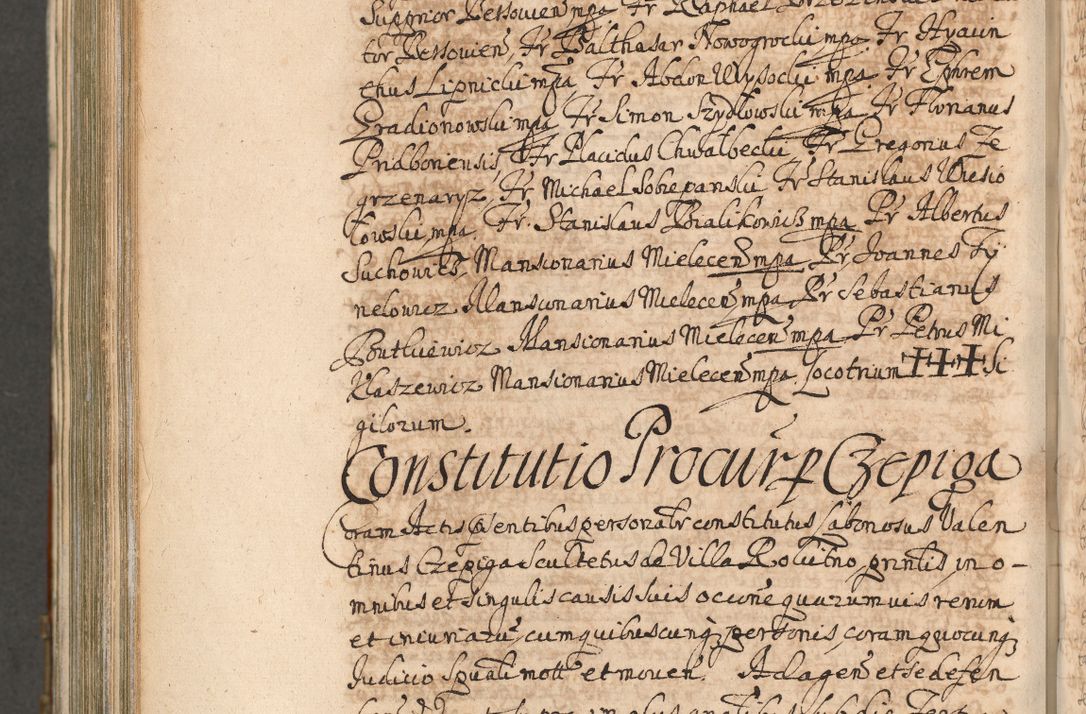 Supprior Bessovien mpa Fr Raphael
tor Bessovien, Fr Balthasar Nowogrocki mpa Fr Hyacin
thus Lipnicki mpa Fr Abdon Wysocki mpa Fr Ephrem
Gradionowski mpa Fr Simon Szydłowski mpa Fr Florianus
Pridboniensis, Fr Placidus Chwalbecki Fr Gregorius Ze
grzenaryz, Fr Michael Sobepanski Fr Stanislaus Wiesio
łowski mpa. Fr. Stanislaus Bialikowicz mpa Pr Albertus
Suchowicz, Mansionarius Mielecen mpa Pr Joannes Ty
nelowicz Mansionarius Mielecen mpa Pr Sebastianus
Mansionarius Mielecen mpa Pr Petrus Mi
klaszewicz Mansionarius Mielecen mpa. Locotrium +++ Si
gilorum.
Constitutio Procur p Czepiga
Coram Actis psentibus personalr constitutus Labonosus Valen
tinus Czepiga Scultetus de Villa Rokitno, prntis in o-
mnibus et singulis causis suis occone quarumvis rerum
et iniuriaru, cum quibuscunq personis, coram quocunq
Judicio Spuali mott et moven. Ad agen et se defen